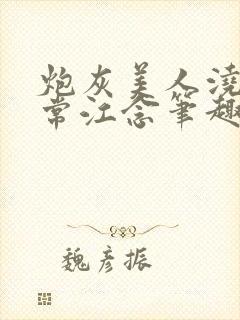 炮灰美人浇
常江念笔趣
魏彦振